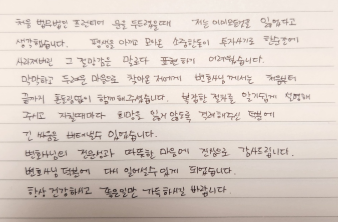 처음 법무법인 프런티어 문을 두드렸을때 저는 이미모든걸 잃었다고
생각했습니다. 평생을 아끼고 모아온 소중한돈이 투자사기로 한순간에
사라져버린 그 절망감은 말로다 표현하기 어려웠습니다.
막막하고 두려운 마음으로 찾아온 저에게 변호사님께서는 처음부터
끝까지 흔들림없이 함께해주셨습니다. 복잡한 절차를 알기쉽게 설명해
주시고 지칠때마다 희망을 잃지 않도록 격려해주신 덕분에
긴 싸움을 버텨낼수 있었습니다.
변호사님의 전문성과 따뜻한 마음에 진심으로 감사드립니다.
변호사님 덕분에 다시 일어설수 있게 되었습니다.
항상 건강하시고 좋은일만 가득하시길 바랍니다.